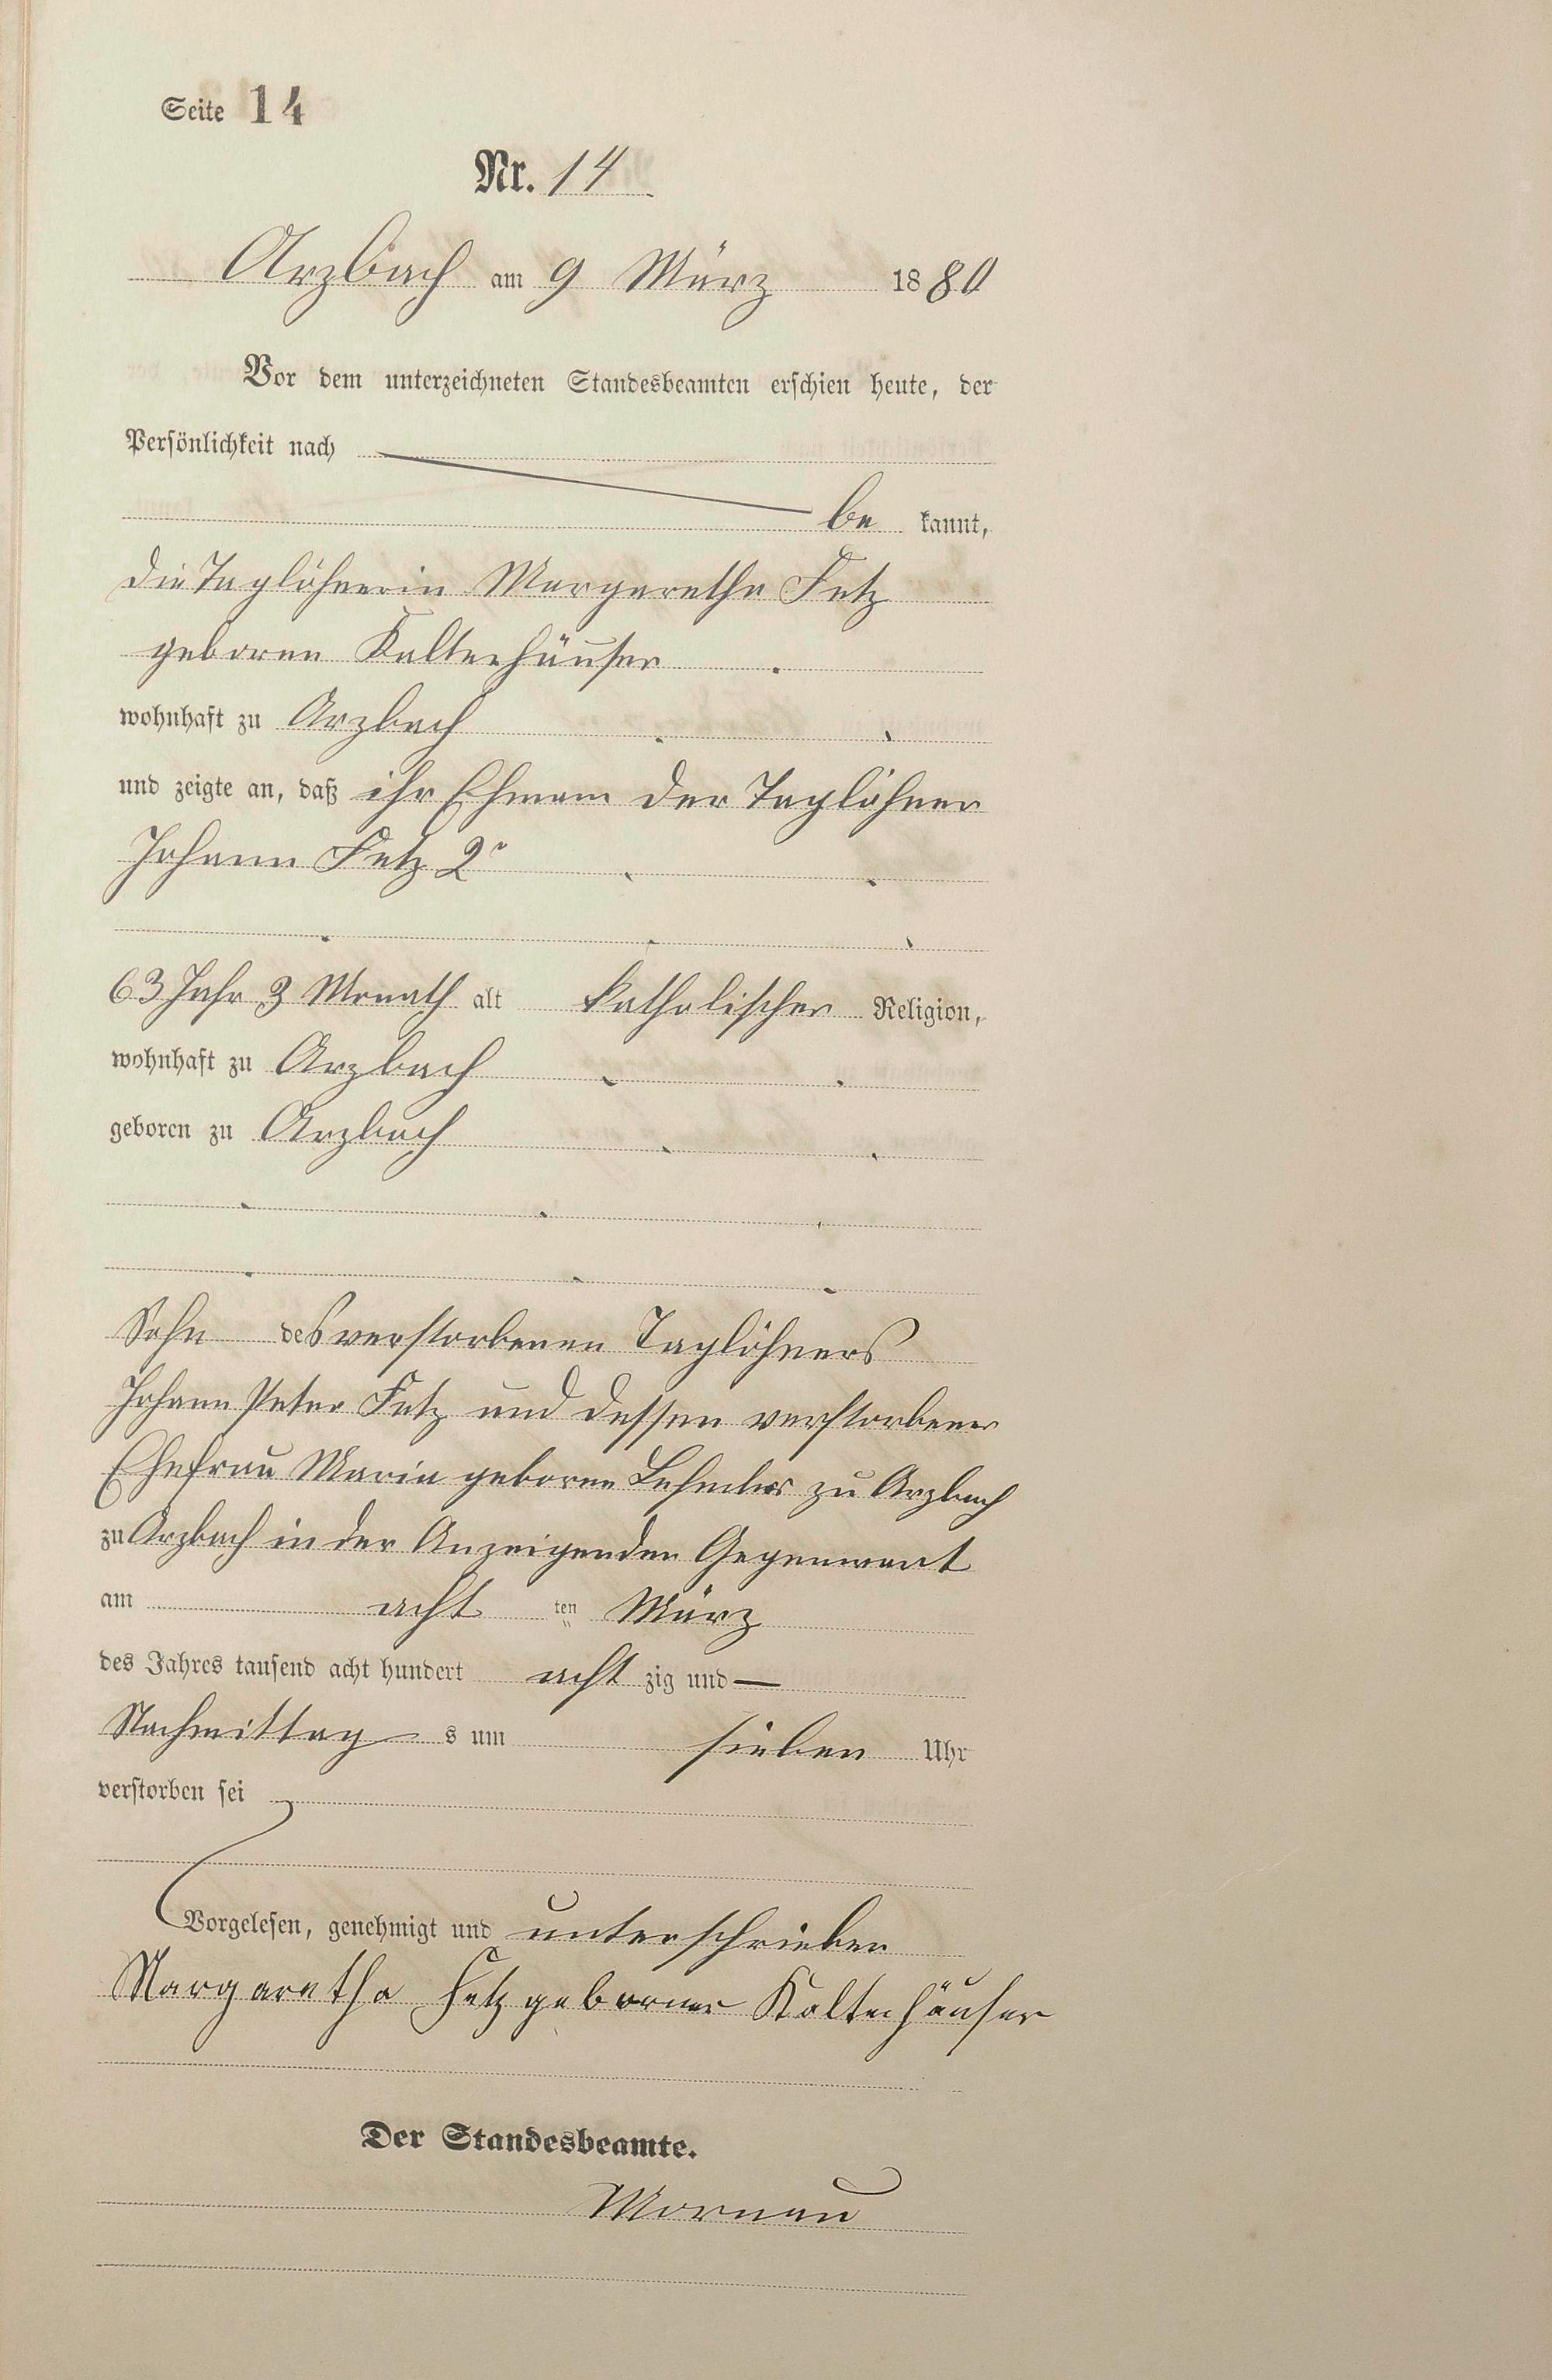 Seite 14
Nr. 14
Arzbach am 9 März 1880
Vor dem unterzeichneten Standesbeamten erschien heute, der
Persönlichkeit nach
be kannt,
die Taglöhnerin Margaretha Fetz
geborene Kaltenhäuser
wohnhaft zu Arzbach
und zeigte an, daß ihr Ehmann der Taglöhner
Johann Fetz 2r
63 Jahr 3 Monath alt katholischer Religion,
wohnhaft zu Arzbach
geboren zu Arzbach
Sohn des verstorbenen Taglöhners
Johann Peter Fetz und dessen verstorbener
Ehefrau Maria geborne zu Arzbach
zu Arzbach in der Anzeigenden Gegenwart
am acht ten März
des Jahres tausend acht hundert acht zig und —
Nachmittag s um sieben Uhr
verstorben sei
Vorgelesen, genehmigt und unterschrieben
Margaretha Fetz geborner Kaltenhäuser
Der Standesbeamte.